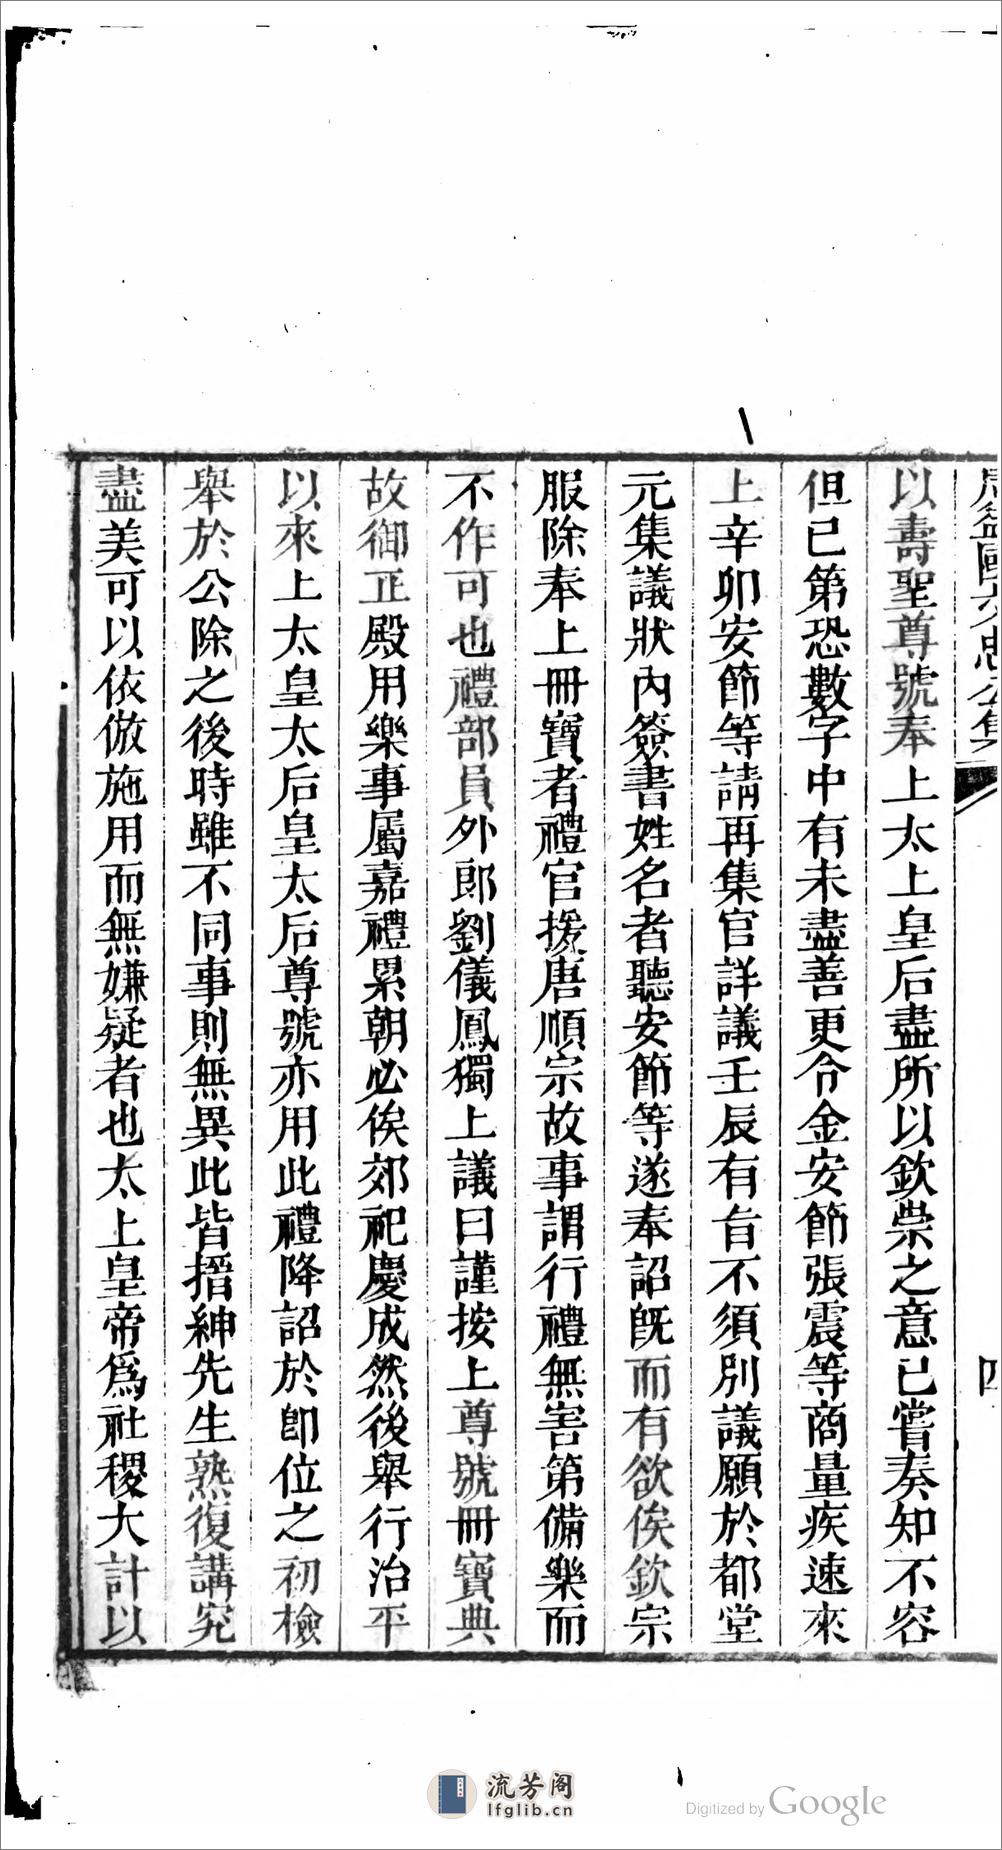 以壽聖尊號奉上太上皇后盡所以欽崇之意已嘗奏知不容
但已第恐數字中有未盡善更令金安節張震等商量疾速來
上辛卯安節等請再集官詳議壬辰有旨不須別議願於都堂
元集議狀內簽書姓名者聽安節等遂奉詔旣而有欲俟欽宗
服除奉上冊寶者禮官援唐順宗故事謂行禮無害第備樂而
不作可也禮部員外郎劉儀鳳獨上議曰謹按上尊號冊寶典
故御正殿用樂事屬嘉禮累朝必俟郊祀慶成然後舉行治平
以來上太皇太后皇太后尊號亦用此禮降詔於卽位之初檢
舉於公除之後時雖不同事則無異此皆搢紳先生熟復講究
盡美可以依倣施用而無嫌疑者也太上皇帝爲社稷大計以
流芳阁
lfglib.cn
Digitized by Google